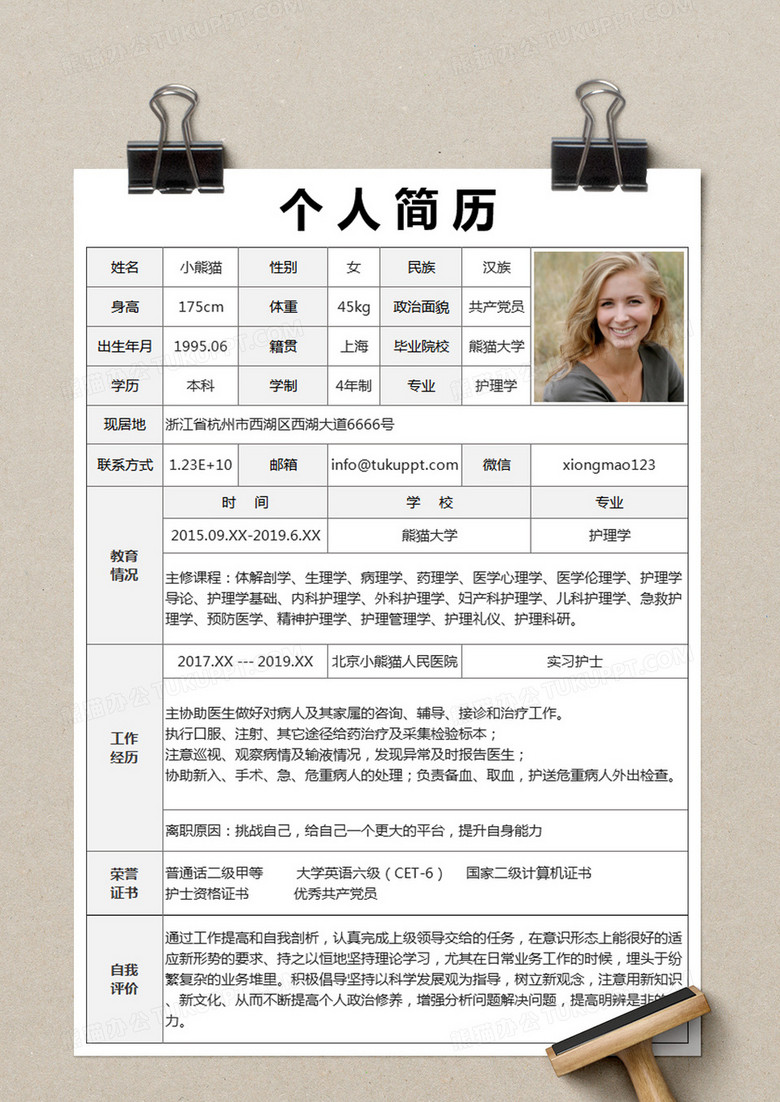 个人简历
姓名 小熊猫 性别 女 民族 汉族
身高 175cm 体重 45kg 政治面貌 共产党员
出生年月 1995.06 籍贯 上海 毕业院校 熊猫大学
学历 本科 学制 4年制 专业 护理学
现居地 浙江省杭州市西湖区西湖大道6666号
联系方式 1.23E+10 邮箱 info@tukuppt.com 微信 xiongmao123
教育
情况
时 间 学 校 专业
2015.09.XX-2019.6.XX 熊猫大学 护理学
主修课程：体解剖学、生理学、病理学、药理学、医学心理学、医学伦理学、护理学
导论、护理学基础、内科护理学、外科护理学、妇产科护理学、儿科护理学、急救护
理学、预防医学、精神护理学、护理管理学、护理礼仪、护理科研。
工作
经历
2017.XX --- 2019.XX 北京小熊猫人民医院 实习护士
主协助医生做好对病人及其家属的咨询、辅导、接诊和治疗工作。
执行口服、注射、其它途径给药治疗及采集检验标本；
注意巡视、观察病情及输液情况，发现异常及时报告医生；
协助新入、手术、急、危重病人的处理；负责备血、取血，护送危重病人外出检查。
离职原因：挑战自己，给自己一个更大的平台，提升自身能力
荣誉
证书
普通话二级甲等 大学英语六级（CET-6） 国家二级计算机证书
护士资格证书 优秀共产党员
自我
评价
通过工作提高和自我剖析，认真完成上级领导交给的任务，在意识形态上能很好的适
应新形势的要求、持之以恒地坚持理论学习，尤其在日常业务工作的时候，埋头于纷
繁复杂的业务堆里。积极倡导坚持以科学发展观为指导，树立新观念，注意用新知识
、新文化、从而不断提高个人政治修养，增强分析问题解决问题，提高明辨是非的
力。
熊猫办公 TUKUPPT.COM